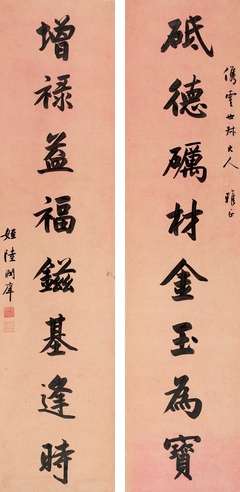 儁雲世大人 雅正
砥德礪材金玉為寶
增祿益福鎡基逢時
姪陸潤庠